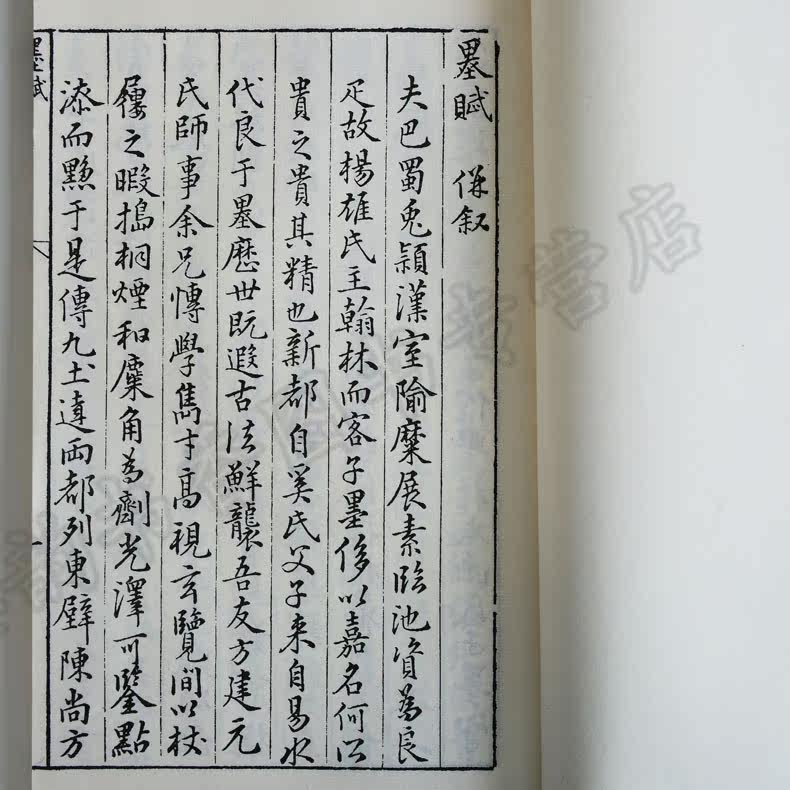 墨賦 併叙
夫巴蜀兎頴漢室隃糜展素臨池資為良
足故揚雄氏主翰林而客子墨侈以嘉名何以
貴之貴其精也新都自奚氏父子来自易水
代良于墨歷世既遐古法鮮襲吾友方建元
氏師事余兄愽學雋才高視玄覽間以杖
屨之暇搗桐煙和麋角為劑光澤可鑒點
漆而黝于是傳九土達兩都列東壁陳尚方
墨賦
一
老营店